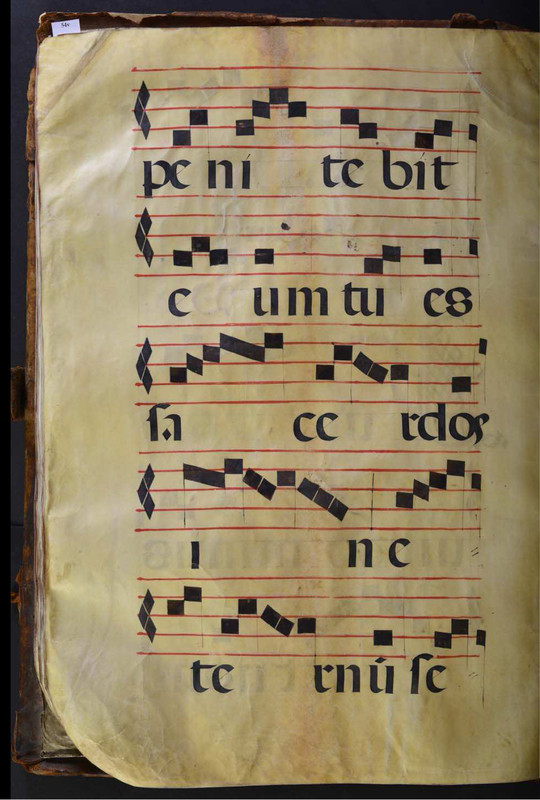 pe ni te bit
e um tu es
sa ce rdos
i n e
te rnū se